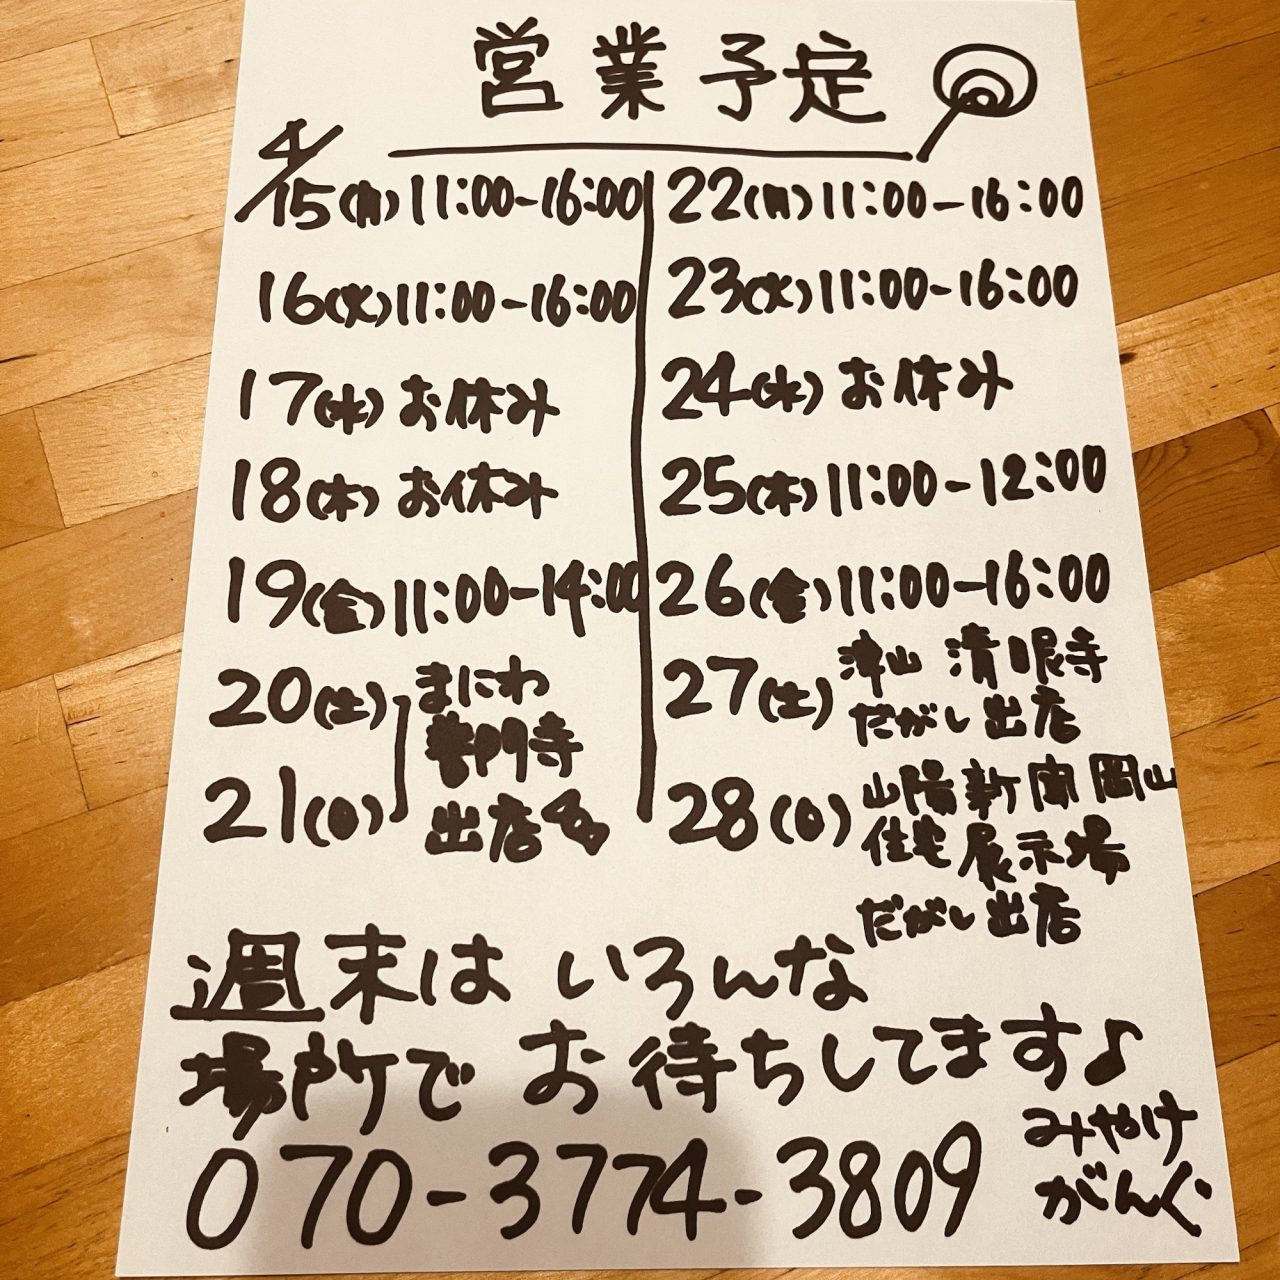 営業予定
4/15(月)11:00-16:00
16(火)11:00-16:00
17(水)お休み
18(木)お休み
19(金)11:00-14:00
20(土)
21(日)
まにわ
普門寺
出店
22(月)11:00-16:00
23(火)11:00-16:00
24(水)お休み
25(木)11:00-12:00
26(金)11:00-16:00
27(土)津山 清眼寺
だがし出店
28(日)山陽新聞岡山
住宅展示場
だがし出店
週末は いろんな
場所で お待ちしてます♪
070-3774-3809
みやけ
がんぐ